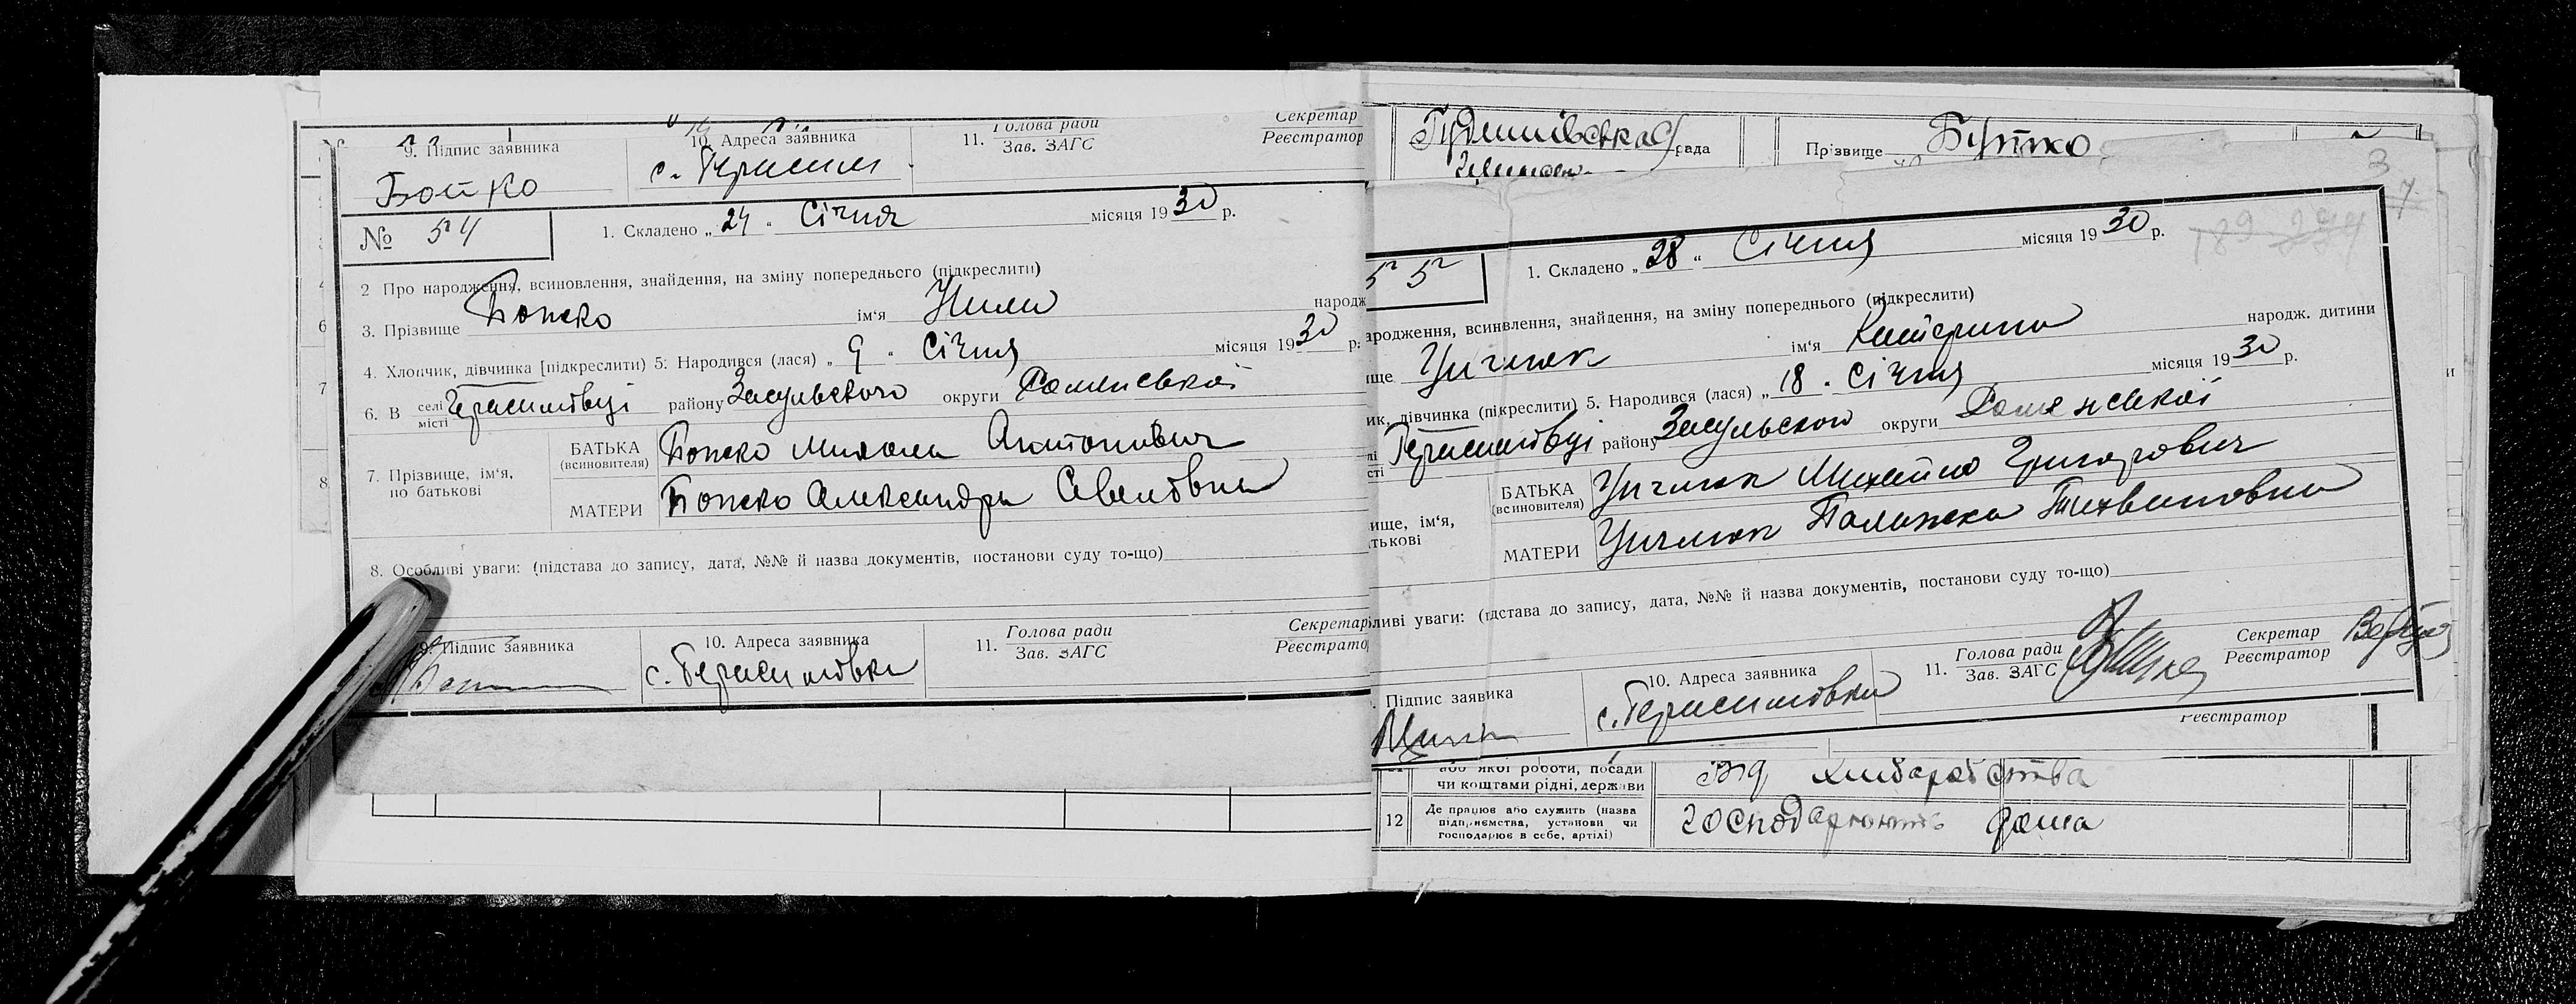 9. Підпис заявника
10. Адреса заявника
11. Голова ради
Зав. ЗАГС
Секретар
Реєстратор
Бойко
№ 54
1. Складено „24" Січня місяця 1930 р.
2 Про народження, всиновлення, знайдення, на зміну попереднього (підкреслити)
3. Прізвище Бойко ім'я народж
4. Хлопчик, дівчинка [підкреслити) 5: Народився (лася) „9" Січня місяця 1930 р.
6. В селі Герасимовці району Засульського округи Роменської
місті
7. Прізвище, ім'я, по батькові
БАТЬКА (всиновителя) Бойко Микола Антонович
МАТЕРИ Бойко Александра
8. Особливі уваги: (підстава до запису, дата, №№ й назва документів, постанови суду то-що)
9. Підпис заявника
10. Адреса заявника
с. Герасимовка
11. Голова ради
Зав. ЗАГС
Секретар
Реєстратор
рада
Прізвище Бутко
55
1. Складено „28" Січня місяця 1930 р.
ародження, всинвлення, знайдення, на зміну попереднього (підкреслити)
ище ім'я Катерина народж. дитини
ик, дівчинка (пікреслити) 5. Народився (лася) „18" Січня місяця 1930 р.
Герасимовці району Засульского округи Роменської
ище, ім'я,
тькові
БАТЬКА (всиновителя) Михайло Григорович
МАТЕРИ
ливі уваги: (підстава до запису, дата, №№ й назва документів, постанови суду то-що)
Підпис заявика
10. Адреса заявника
с. Герасимовка
11. Голова ради
Зав. ЗАГС
Секретар
Реєстратор
Реєстратор
або якої роботи, посади
чи коштами рідні, держави
від хлиборобства
12 Де працює або служить (назва
підприємства, установи чи
господарює в себе, артілі)
господарюють дома